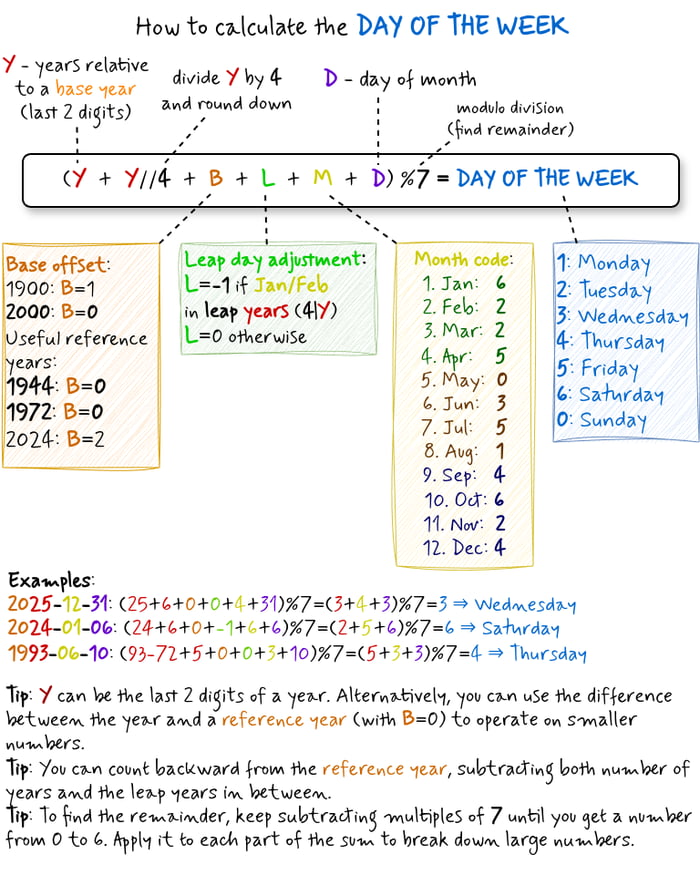 How to calculate the DAY OF THE WEEK
Y - years relative
to a base year
(last 2 digits)
divide Y by 4
and round down
D - day of month
modulo division
(find remainder)
(Y + Y//4 + B + L + M + D) %7 = DAY OF THE WEEK
Base offset:
1900: B=1
2000: B=0
Useful reference
years:
1944: B=0
1972: B=0
2024: B=2
Leap day adjustment:
L=-1 if Jan/Feb
in leap years (4|Y)
L=0 otherwise
Month code:
1. Jan: 6
2. Feb: 2
3. Mar: 2
4. Apr: 5
5. May: 0
6. Jun: 3
7. Jul: 5
8. Aug: 1
9. Sep: 4
10. Oct: 6
11. Nov: 2
12. Dec: 4
1: Monday
2: Tuesday
3: Wednesday
4: Thursday
5: Friday
6: Saturday
0: Sunday
Examples:
2025-12-31: (25+6+0+0+4+31)%7=(3+4+3)%7=3 ⇒ Wednesday
2024-01-06: (24+6+0+-1+6+6)%7=(2+5+6)%7=6 ⇒ Saturday
1993-06-10: (93-72+5+0+0+3+10)%7=(5+3+3)%7=4 ⇒ Thursday
Tip: Y can be the last 2 digits of a year. Alternatively, you can use the difference
between the year and a reference year (with B=0) to operate on smaller
numbers.
Tip: You can count backward from the reference year, subtracting both number of
years and the leap years in between.
Tip: To find the remainder, keep subtracting multiples of 7 until you get a number
from 0 to 6. Apply it to each part of the sum to break down large numbers.